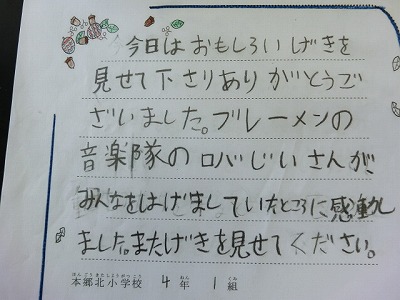 今日はおもしろいげきを
見せて下さりありがとうご
ざいました。ブレーメンの
音楽隊のロバじいさんが
みんなをはげましていたところに感動し
ました。またげきを見せてください。
ほんごうきたしょうがっこう ねん くみ
本郷北小学校 4年 1組